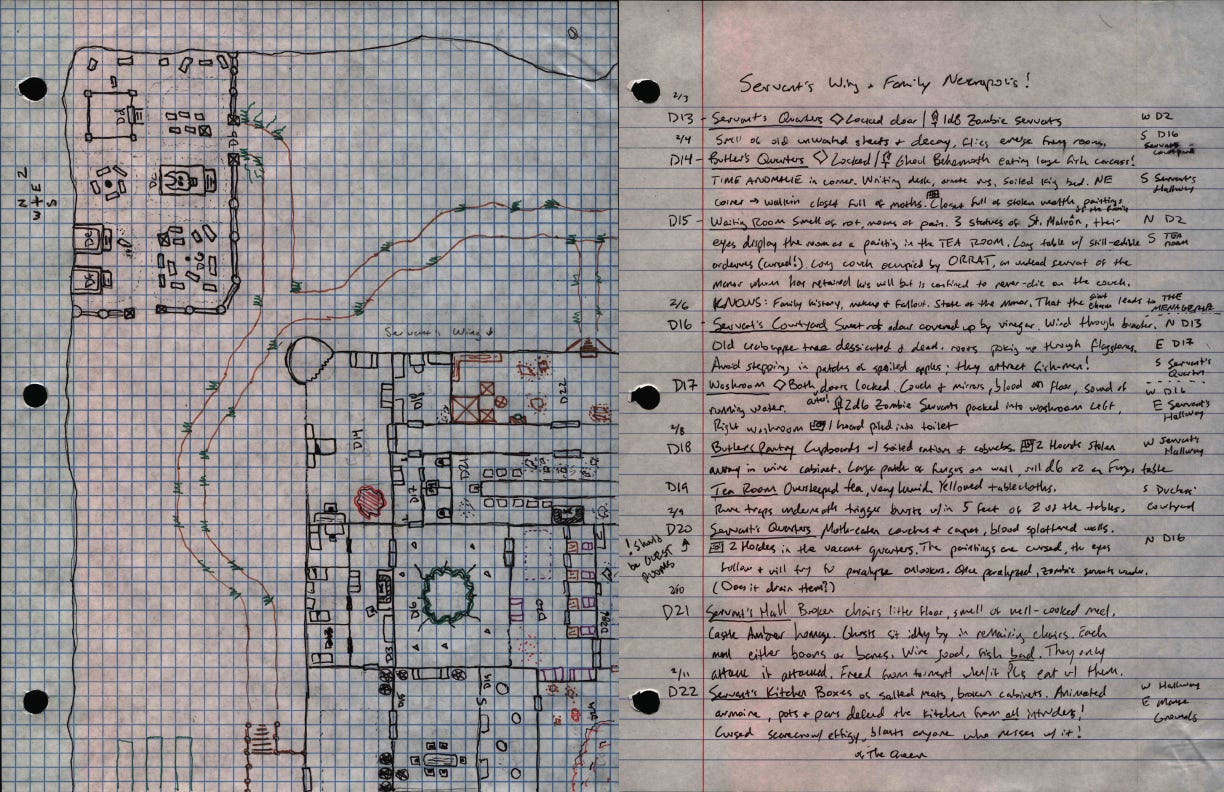 N
W+E
S
Dd
Dc
De
Df
DG
Servant's Wing
D14
D18
D22
D17
D21
D16
D20
D13
D15
D19
Servant's Wing + Family Necropolis!
2/3
D13 - Servant's Quarters Locked door | 1d8 Zombie servants W D2
2/4 Smell of old unwashed sheets + decay, flies emerge from rooms. S D16
D14 - Butler's Quarters Locked | Ghoul Behemoth eating large fish carcass!
TIME ANOMALIE in corner. Writing desk, ornate rug, soiled king bed. NE S Servant's Hallway
corner → walkin closet full of moths. Closet full of stolen wealth, paintings of the family
D15 - Waiting Room Smell of rot, moans of pain. 3 statues of St. Malvôn, their N D2
eyes display the room as a painting in the TEA ROOM. Long table w/ still-edible S TEA room
orderves (cursed!). Long couch occupied by ORRAT, an undead servant of the
manor whom has retained his will but is confined to never-die on the couch.
2/6 KNOWS: Family history, makeup + fallout. State of the manor. That the giant leads to THE MENAGERIE
D16 - Servant's Courtyard Sweet rot odour covered up by vinegar. Wind through branches. N D13
Old crabapple tree dessicated + dead. roots poking up through flagstones. E D17
Avoid stepping in patches of spoiled apples; they attract fish-men! S Servant's Quarters
D17 Washroom Both doors locked. Couch + mirrors, blood on floor, sound of W D16
running water. 2d6 Zombie Servants packed into washroom left, E Servant's Hallway
2/8 Right washroom 1 hoard piled into toilet
D18 Butler's Pantry Cupboards w/ soiled rations + cabinets. 2 Hoards stolen W Servant's Hallway
away in wine cabinet. Large patch of fungus on wall, roll d6 x2 on Fungi table
D19 Tea Room Oversteeped tea, very humid. Yellowed tablecloths. S Duchess' Courtyard
2/9 Rune traps underneath trigger bursts w/in 5 feet of 2 of the tables.
D20 Servant's Quarters Moth-eaten couches + carpet, blood splattered walls. N D16
! should be GUEST ROOMS
2 Hordes in the vacant quarters. The paintings are cursed, the eyes
follow + will try to paralyze onlookers. Once paralyzed, zombie servants
2/10 (Does it drain them?)
D21 Servant's Hall Broken chairs litter floor, smell of well-cooked meal.
Castle Amber homage. Ghosts sit idly by in remaining chairs. Each
meal either boons or banes. Wine good, fish bad. They only
2/11 attack if attacked. Freed from torment when/if PCs eat w/ them.
D22 Servant's Kitchen Boxes of salted meats, broken cabinets. Animated W Hallway
armoire, pots + pans defend the kitchen from all intruders! E Manse Grounds
Cursed scarecrow/effigy, blasts anyone who messes w/ it!
of The Queen